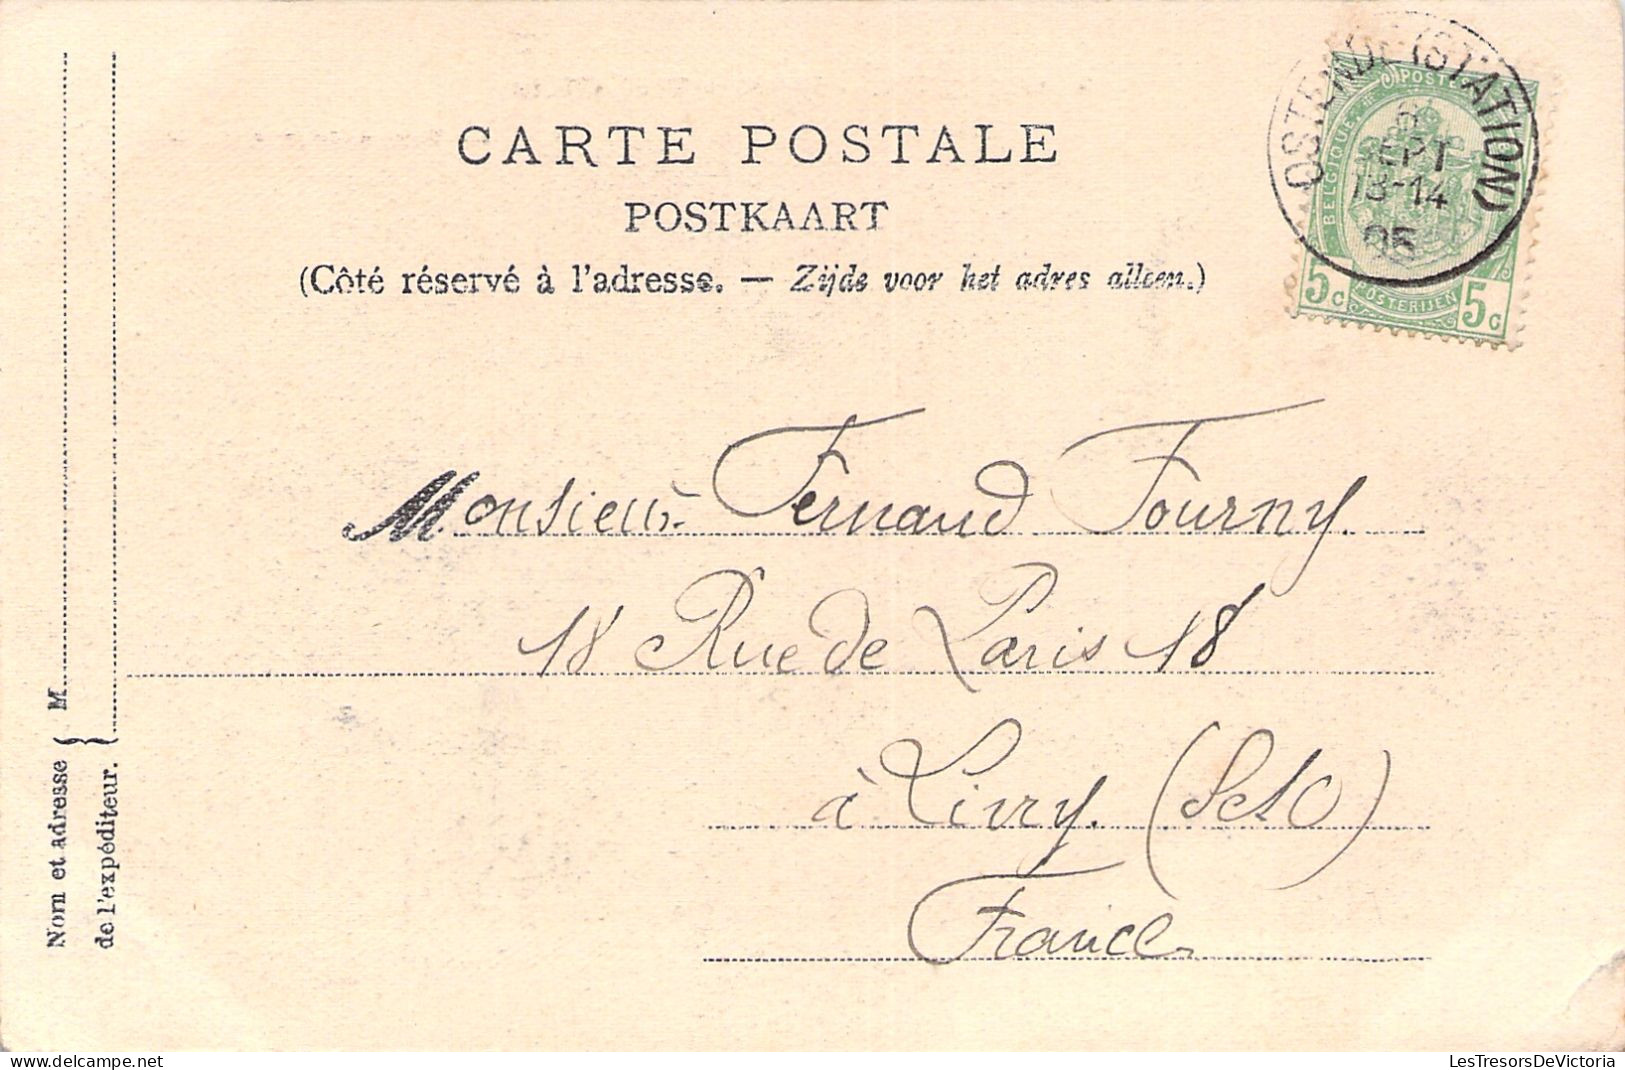 CARTE POSTALE
POSTKAART
(Côté réservé à l'adresse. — Zijde voor het adres alleen.)
OSTENDE (STATION)
SEPT
13-14
05
POSTES
BELGIQUE
5c POSTERIJEN 5c
Monsieur Fernand Fourny.
18 Rue de Paris 18
à Livry. (S et O)
France
Nom et adresse { M
de l'expéditeur. }
delcampe.net
LesTresorsDeVictoria